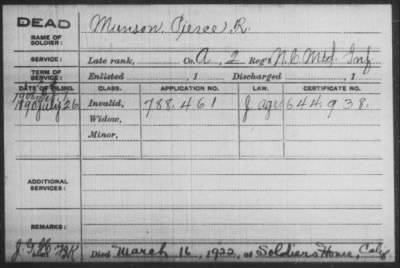 DEAD
NAME OF SOLDIER: Munson, Pierce R.
SERVICE: Late rank, Co. A, 2 Reg't N.C. Mtd. Inf
TERM OF SERVICE: Enlisted , 1 Discharged , 1
DATE OF FILING. CLASS. APPLICATION NO. LAW. CERTIFICATE NO.
1890 July 26 Invalid, 788.461 J 644.938.
Widow,
Minor,
ADDITIONAL SERVICES:
REMARKS:
Died March 16, 1922, at Soldiers Home, Calif